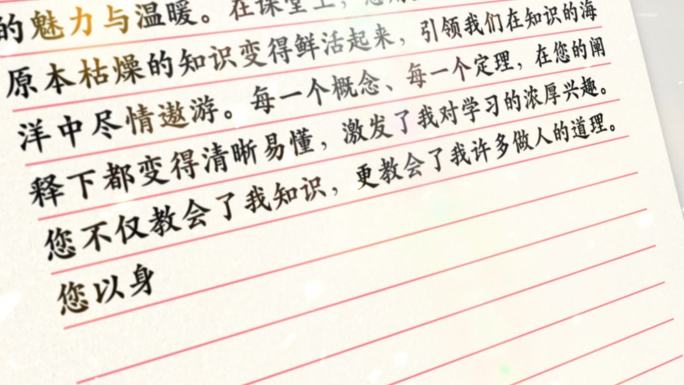 的魅力与温暖。在课堂上，您
原本枯燥的知识变得鲜活起来，引领我们在知识的海
洋中尽情遨游。每一个概念、每一个定理，在您的阐
释下都变得清晰易懂，激发了我对学习的浓厚兴趣。
您不仅教会了我知识，更教会了我许多做人的道理。
您以身